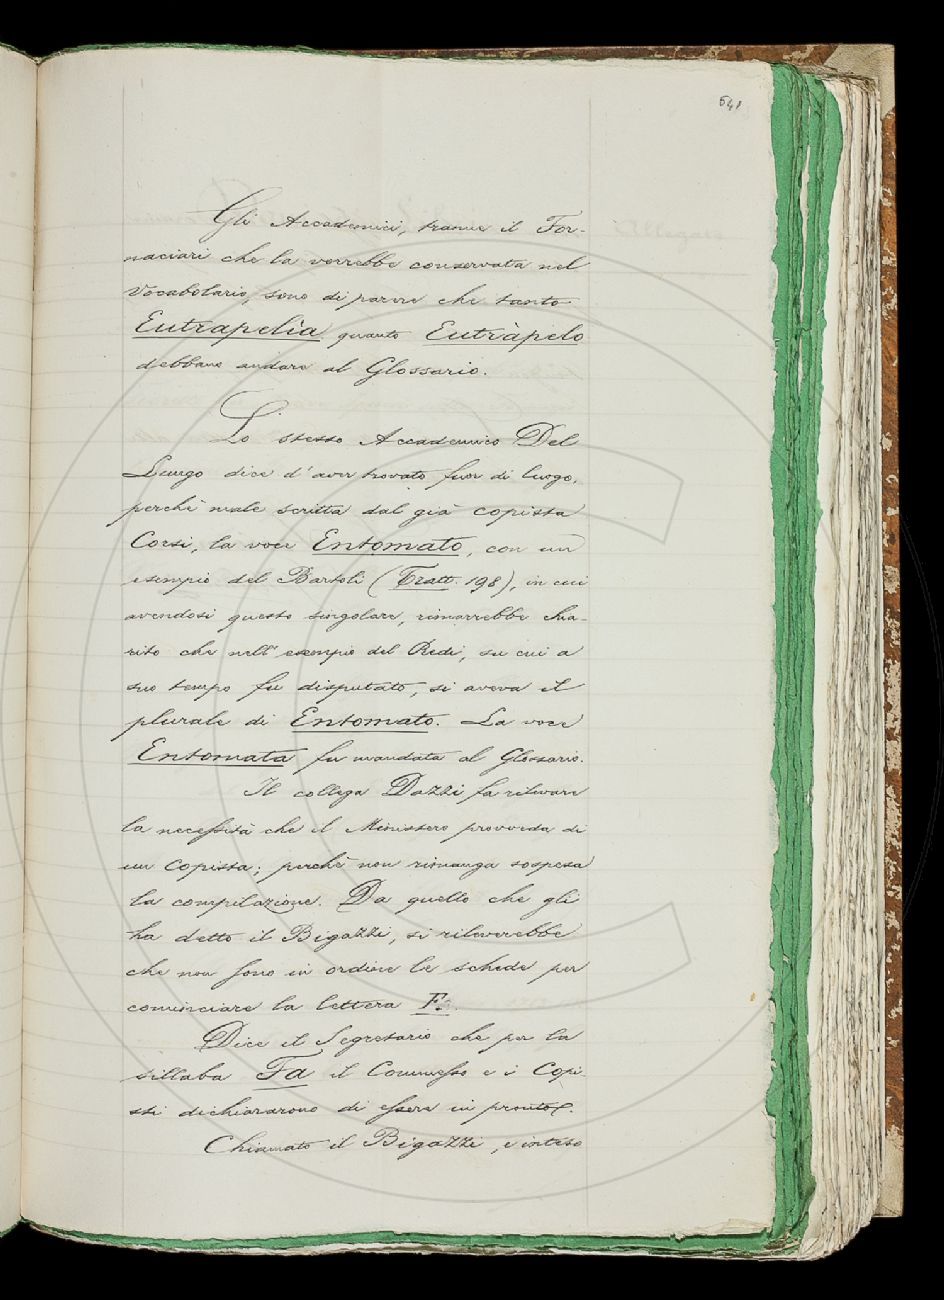 541
Gli Accademici, tranne il For-
naciari che la vorrebbe conservata nel
Vocabolario, sono di parere che tanto
Eutrapelìa quanto Eutràpelo
debbano andare al Glossario.
Lo stesso Accademico Del
Lungo dice d'aver trovato fuor di luogo,
perchè male scritta dal già copista
Corsi, la voce Entomato, con un
esempio del Bartoli (Tratt. 198), in cui
avendosi questo singolare, rimarrebbe chia-
rito che nell'esempio del Redi, su cui a
suo tempo fu disputato, si aveva il
plurale di Entomato. La voce
Entomata fu mandata al Glossario.
Il collega Dazzi fa rilevare
la necessità che il Ministero provveda di
un copista; perchè non rimanga sospesa
la compilazione. Da quello che gli
ha detto il Bigazzi, si rileverebbe
che non sono in ordine le schede per
cominciare la lettera F.
Dice il Segretario che per la
sillaba Fa il Commesso e i Copi-
sti dichiararono di essere in pronto.
Chiamato il Bigazzi, e inteso